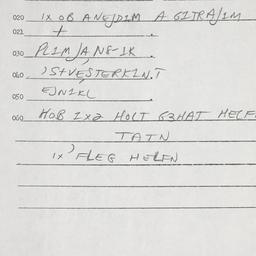 020 1X OB ANEJDIM A GITRA/IM
021 + .
030 PLIM/ANS-IK .
040 )S+VESTERKIN.T
050 EJNIKL
060 HOB 1X2 HOLT G3HAT HELF
TATN
1X) FLEG HELFN